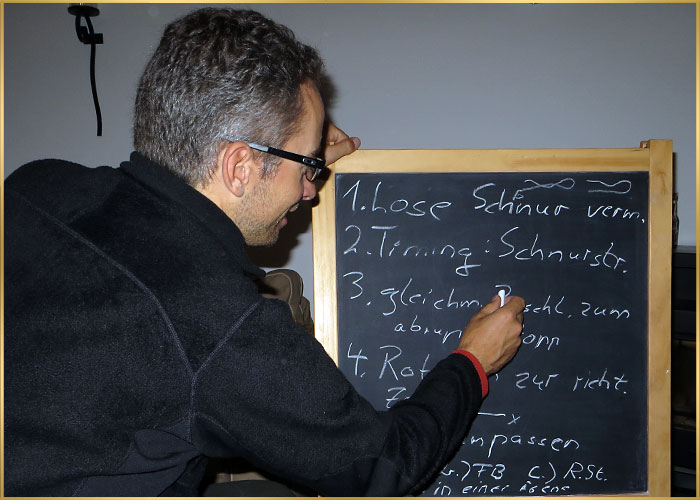 1. Lose Schnur verm.
2. Timing: Schnurstr.
3. gleichm. schl. zum
4. zur richt.
x
anpassen
FB C.) R.St.
in einer Ebene